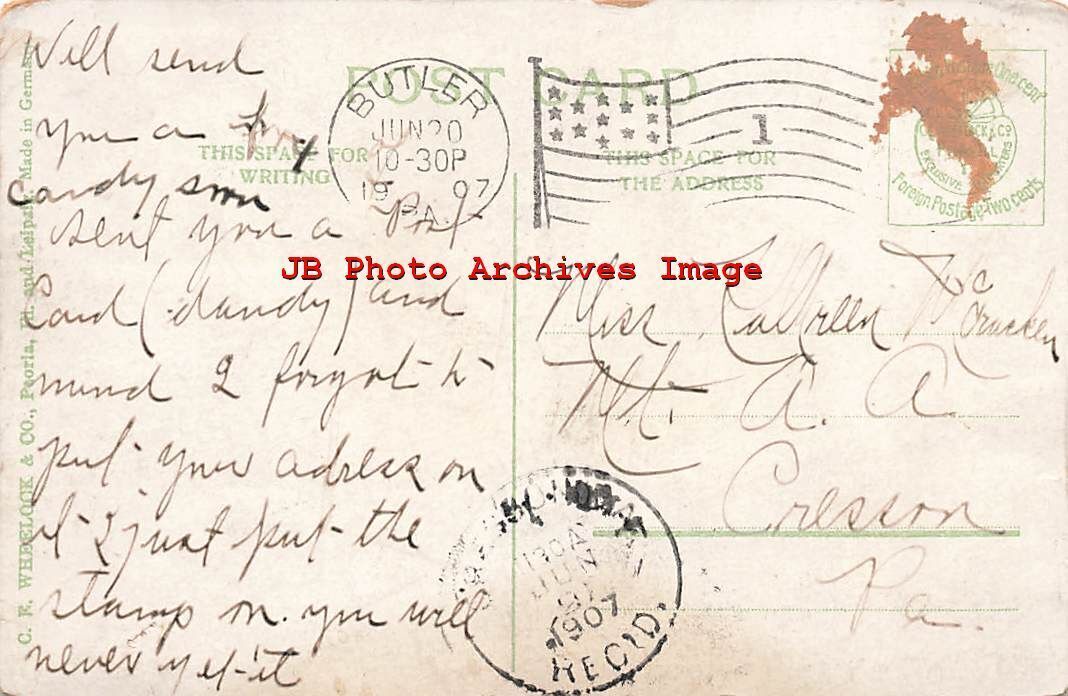 Will send
you a
candy soon
sent you a Post
Card (dandy) and
mind I forgot to
put your adress on
it I just put the
stamp on. you will
never get it
POST CARD
THIS SPACE FOR
WRITING
THIS SPACE FOR
THE ADDRESS
BUTLER
JUN 20
10-30P
1907
PA.
1
One cent
Foreign Postage Two cents
JB Photo Archives Image
Miss Kathreen McCracken
Mt. A. A.
Cresson
Pa.
JUN
1907
REC'D.
C. E. WHEELOCK & CO., Peoria, Ill. and Leipzig. Made in Germany